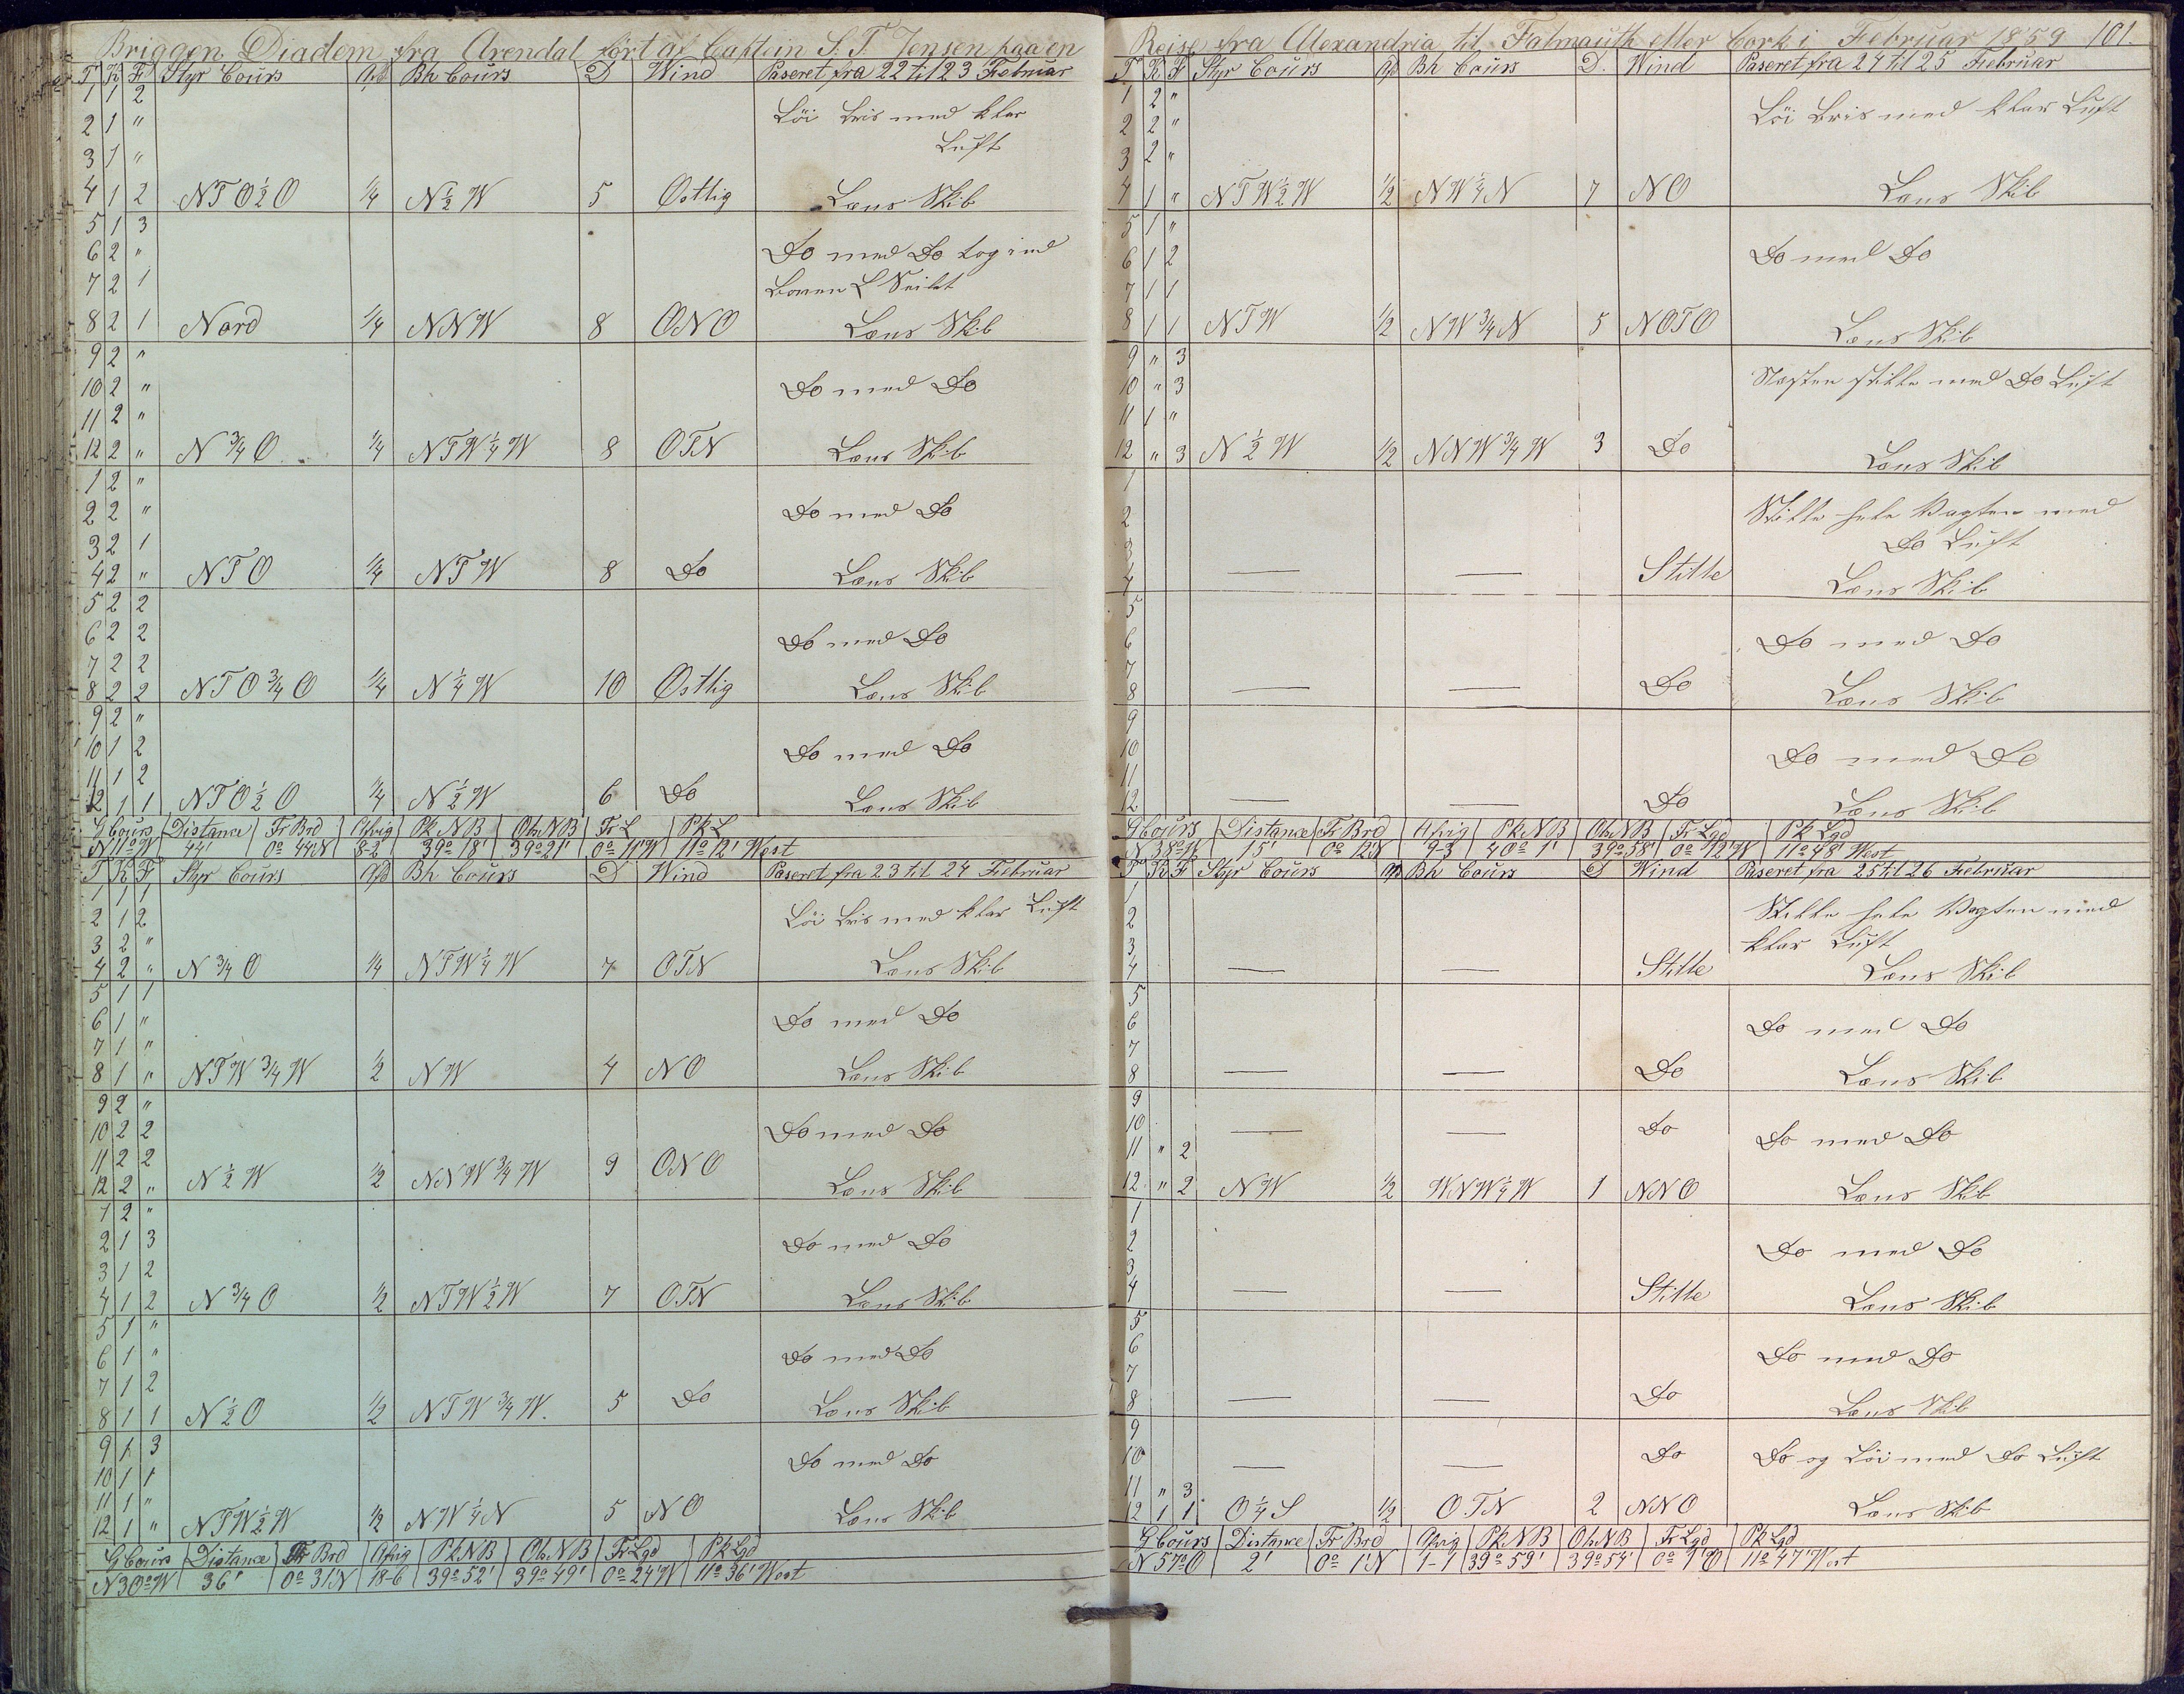 Briggen Diadem fra Arendal ført af Captein S. T. Jensen paa en
T K F Styr Cours Afd Bh Cours D Wind Paseret fra 22 til 23 Februar
1 1 2
2 1 " Löi Bris med klar
3 1 " Luft
4 1 2 NTO½O ¼ N½W 5 Ostlig Læns Skib
5 1 3
6 2 " Do med Do tog ind
7 2 1 Boven L Seilet
8 2 1 Nord ¼ NNW 8 ONO Læns Skib
9 2 "
10 2 " Do med Do
11 2 "
12 2 " N¾O ¼ NTW¼W 8 OTN Læns Skib
1 2 "
2 2 " Do med Do
3 2 1
4 2 " NTO ¼ NTW 8 Do Læns Skib
5 2 2
6 2 2 Do med Do
7 2 2
8 2 2 NTO¾O ¼ N¼W 10 Ostlig Læns Skib
9 2 "
10 1 2 Do med Do
11 1 2
12 1 1 NTO½O ¼ N½W 6 Do Læns Skib
G Cours Distance Fr Brd Afvig Pk NB Obs NB Fr L Pk L
N 11° W 44' 0° 44'N 8-2 39° 18' 39° 21' 0° 11'W 11° 12' West
T K F Styr Cours Afd Bh Cours D Wind Paseret fra 23 til 24 Februar
1 1 1
2 1 2 Löi Bris med klar Luft
3 2 "
4 2 " N¾O ¼ NTW¼W 7 OTN Læns Skib
5 1 1
6 1 " Do med Do
7 1 "
8 1 " NTW¾W ½ NW 4 NO Læns Skib
9 2 "
10 2 2 Do med Do
11 2 2
12 2 " N½W ½ NNW¾W 9 ONO Læns Skib
1 2 "
2 1 3 Do med Do
3 1 2
4 1 2 N¾O ½ NTW½W 7 OTN Læns Skib
5 1 "
6 1 " Do med Do
7 1 2
8 1 1 N½O ½ NTW¾W 5 Do Læns Skib
9 1 3
10 1 1 Do med Do
11 1 "
12 1 " NTW½W ½ NW¼N 5 NO Læns Skib
G Cours Distance Fr Brd Afvig Pk NB Obs NB Fr Lgd Pk Lgd
N 30° W 36' 0° 31'N 18-6 39° 52' 39° 49' 0° 24'W 11° 36' West
Reise fra Alexandria til Falmauth eller Cork i Februar 1859 101.
T K F Styr Cours Afd Bh Cours D. Wind Paseret fra 24 til 25 Februar
1 2 "
2 2 " Löi Bris med klar Luft
3 2 "
4 1 " NTW½W ½ NW¼N 7 NO Læns Skib
5 1 "
6 1 2 Do med Do
7 1 1
8 1 1 NTW ½ NW¾N 5 NOTO Læns Skib
9 " 3
10 " 3 Næsten stille med Do Luft
11 1 "
12 " 3 N½W ½ NNW¾W 3 Do Læns Skib
1
2 Stille hele Vagten med
3 Do Luft
4 — — Stille Læns Skib
5
6 Do med Do
7
8 — — Do Læns Skib
9
10 Do med Do
11
12 — — Do Læns Skib
G Cours Distance Fr Brd Afvig Pk NB Obs NB Fr Lgd Pk Lgd
N 38° W 15' 0° 12'N 9-3 40° 1' 39° 58' 0° 12'W 11° 48' West
T K F Styr Cours Afd Bh Cours D Wind Paseret fra 25 til 26 Februar
1
2 Stille hele Vagten med
3 klar Luft
4 — — Stille Læns Skib
5
6 Do med Do
7
8 — — Do Læns Skib
9
10 — — Do Do med Do
11 " 2
12 " 2 NW ½ WNW¼W 1 NNO Læns Skib
1
2 Do med Do
3
4 — — Stille Læns Skib
5
6 Do med Do
7
8 — — Do Læns Skib
9
10 — — Do Do og Löi med Do Luft
11 " 3
12 1 1 O¼S ½ O.TN 2 NNO Læns Skib
G Cours Distance Fr Brd Afvig Pk NB Obs NB Fr Lgd Pk Lgd
N 57° O 2' 0° 1'N 1-1 39° 59' 39° 54' 0° 1'O 11° 47' West